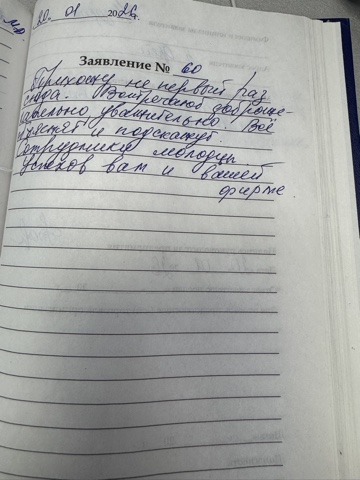 20. 01 2026г.
Заявление № 60
Прихожу не первый раз
сюда. Встречают доброже-
лательно уважительно. Всё
и подскажут.
Сотрудники молодцы
Успехов вам и вашей
фирме.